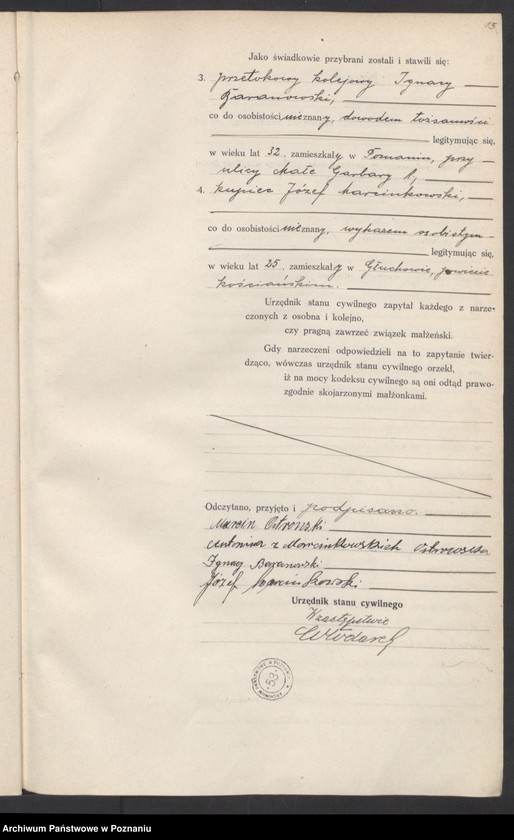 15
Jako świadkowie przybrani zostali i stawili się:
3. przetokowy kolejowy Ignacy
Baranowski,
co do osobistości nieznany, dowodem tożsamości
legitymując się,
w wieku lat 32, zamieszkały w Poznaniu, przy
ulicy Małe Garbary 1,
4. kupiec Józef Marcinkowski,
co do osobistości nieznany, wykazem osobistym
legitymując się,
w wieku lat 25, zamieszkały w Głuchowie, powiecie
kościańskim.
Urzędnik stanu cywilnego zapytał każdego z narze-
czonych z osobna i kolejno,
czy pragną zawrzeć związek małżeński.
Gdy narzeczeni odpowiedzieli na to zapytanie twier-
dząco, wówczas urzędnik stanu cywilnego orzekł,
iż na mocy kodeksu cywilnego są oni odtąd prawo-
zgodnie skojarzonymi małżonkami.
Odczytano, przyjęto i podpisano.
Marcin
Antonina z Marcinkowskich
Ignacy Baranowski
Józef Marcinkowski
Urzędnik stanu cywilnego
W zastępstwie
53
Archiwum Państwowe w Poznaniu